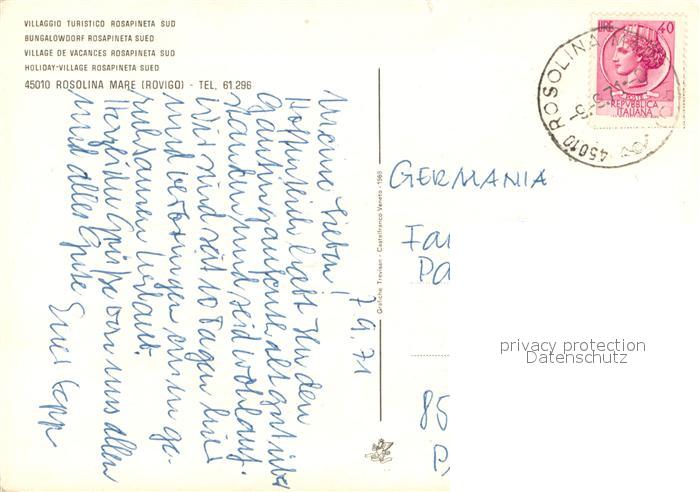 VILLAGGIO TURISTICO ROSAPINETA SUD
BUNGALOWDORF ROSAPINETA SUED
VILLAGE DE VACANCES ROSAPINETA SUD
HOLIDAY-VILLAGE ROSAPINETA SUED
45010 ROSOLINA MARE (ROVIGO) - TEL. 61.296
LIRE 40
POSTE
REPVBBLICA
ITALIANA
45010 ROSOLINA
7.9.71
Meine Lieben!
Hoffentlich habt Ihr den
gut über
standen und seid wohlauf.
Wir sind seit 10 Tagen hier
und verbringen einen ge-
ruhsamen Urlaub.
Herzliche Grüße von uns allen
und alles Gute
Euer Sepp
Grafiche Trevisan - Castelfranco Veneto - 1968
GERMANIA
Fa
Pa
85
privacy protection
Datenschutz